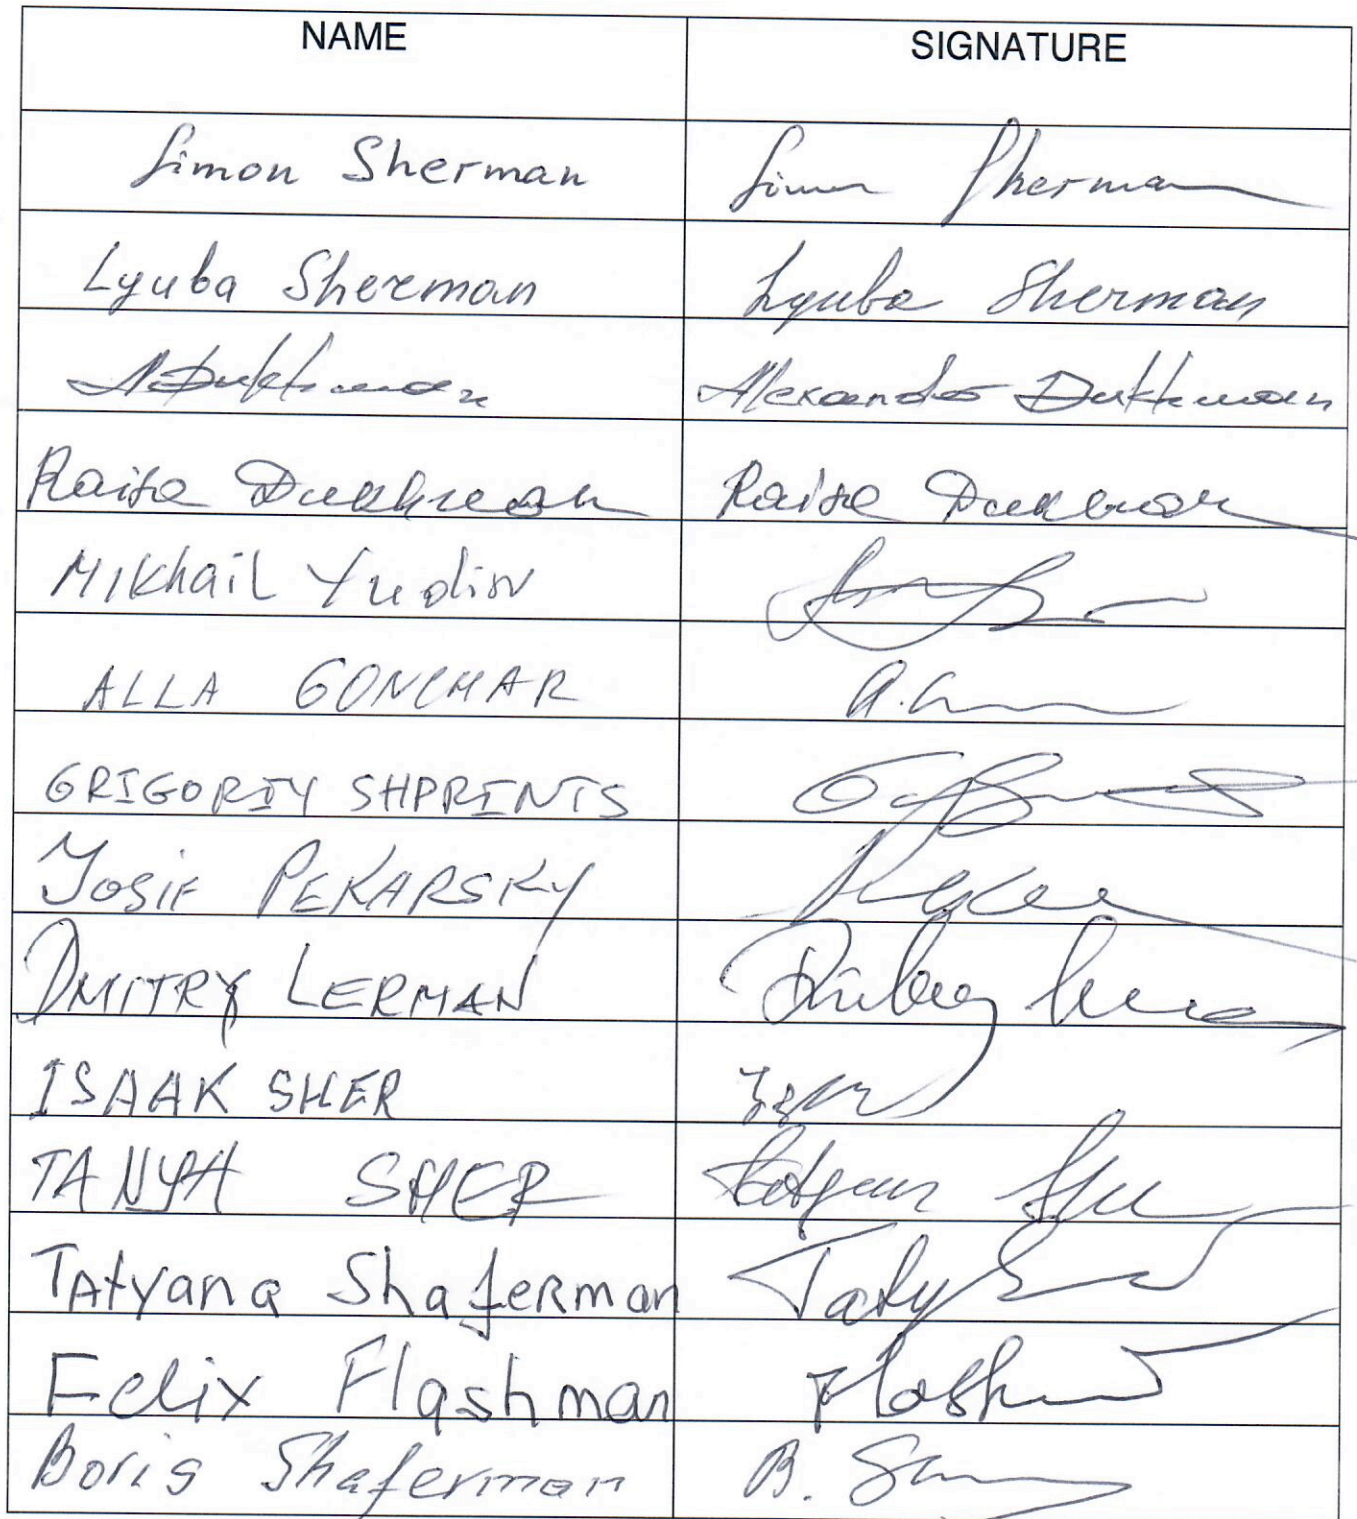 NAME SIGNATURE
Simon Sherman Simon Sherman
Lyuba Sherman Lyuba Sherman
A Dukhman Alexander Dukhman
Raisa Dukhman Raisa Dukhman
Mikhail Yudin
ALLA GONCHAR A.
GRIGORIY SHPRINTS
Yosif PEKARSKY
DMITRY LERMAN
ISAAK SHER
TANYA SHER
Tatyana Shaferman Taty
Felix Flashman Flashman
Boris Shaferman B.